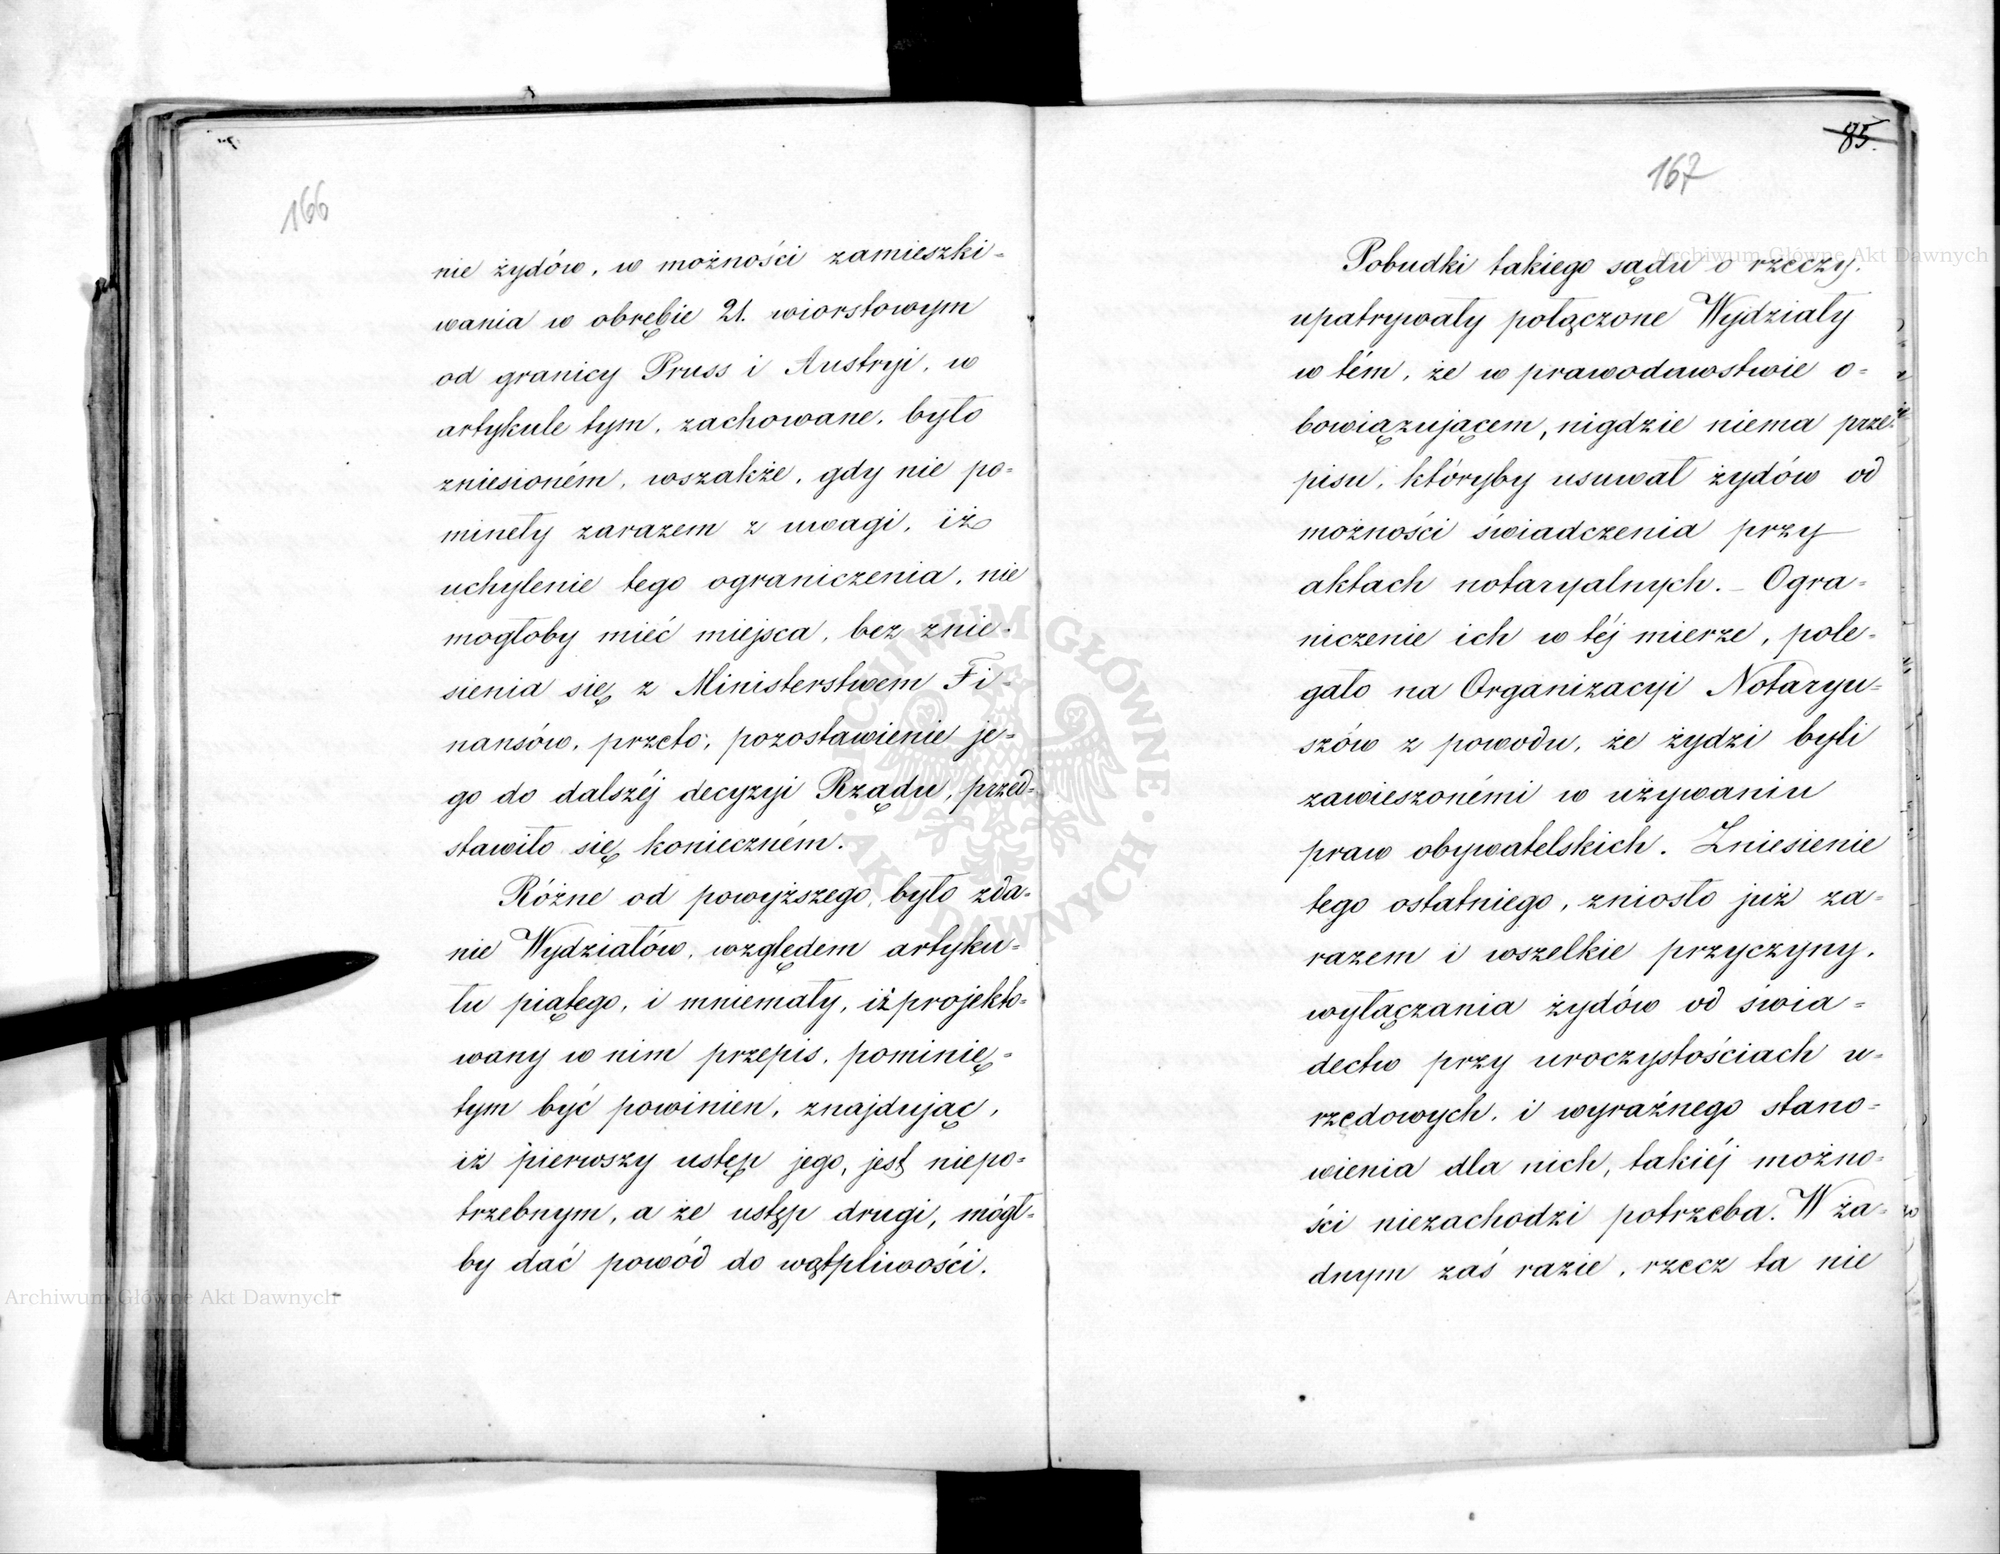 166
nie żydów, w możności zamieszki-
wania w obrębie 21. wiorstowym
od granicy Pruss i Austryi, w
artykule tym, zachowane, było
zniesioném, wszakże, gdy nie po-
minęły zarazem z uwagi, iż
uchylenie tego ograniczenia, nie
mogłoby mieć miejsca, bez znie-
sienia się z Ministerstwem Fi-
nansów, przeto, pozostawienie je-
go do dalszéj decyzyi Rządu, przed-
stawiło się konieczném.
Różne od powyższego, było zda-
nie Wydziałów, względem artyku-
łu piątego, i mniemały, iż projekto-
wany w nim przepis, pominię-
tym być powinien, znajdując,
iż pierwszy ustęp jego, jest niepo-
trzebnym, a że ustęp drugi, mógł-
by dać powód do wątpliwości.
85.
167
Pobudki takiego sądu o rzeczy,
upatrywały połączone Wydziały
w tém, że w prawodawstwie o-
bowiązującem, nigdzie niema prze-
pisu, któryby usuwał żydów od
możności świadczenia przy
aktach notaryalnych. – Ogra-
niczenie ich w téj mierze, pole-
gało na Organizacyi Notaryu-
szów z powodu, że żydzi byli
zawieszonémi w używaniu
praw obywatelskich. Zniesienie
tego ostatniego, zniosło już za-
razem i wszelkie przyczyny,
wyłączania żydów od świa-
dectw przy uroczystościach u-
rzędowych, i wyraźnego stano-
wienia dla nich, takiéj możno-
ści niezachodzi potrzeba. W ża-
dnym zaś razie, rzecz ta nie
Archiwum Główne Akt Dawnych
Archiwum Główne Akt Dawnych
ARCHIWUM GŁÓWNE · AKT DAWNYCH ·